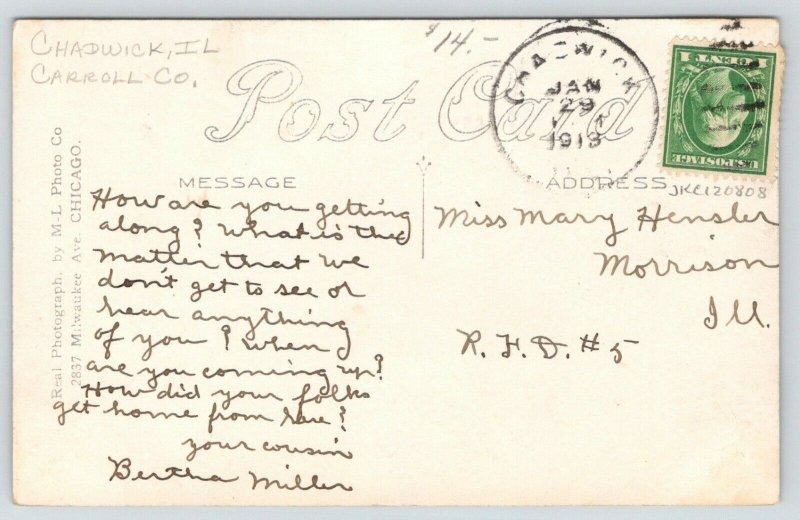 CHADWICK, IL
CARROLL CO.
$14.-
Post Card
CHADWICK
JAN
29
1913
1 CENT 1
U.S. POSTAGE
JKE120808
MESSAGE
ADDRESS
Real Photograph. by M-L Photo Co
2837 Milwaukee Ave. CHICAGO.
How are you getting
along? What is the
matter that we
don't get to see or
hear anything
of you? When
are you coming up?
How did your folks
get home from here?
your cousin
Bertha Miller
Miss Mary Hensler
Morrison
Ill.
R. F. D. #5